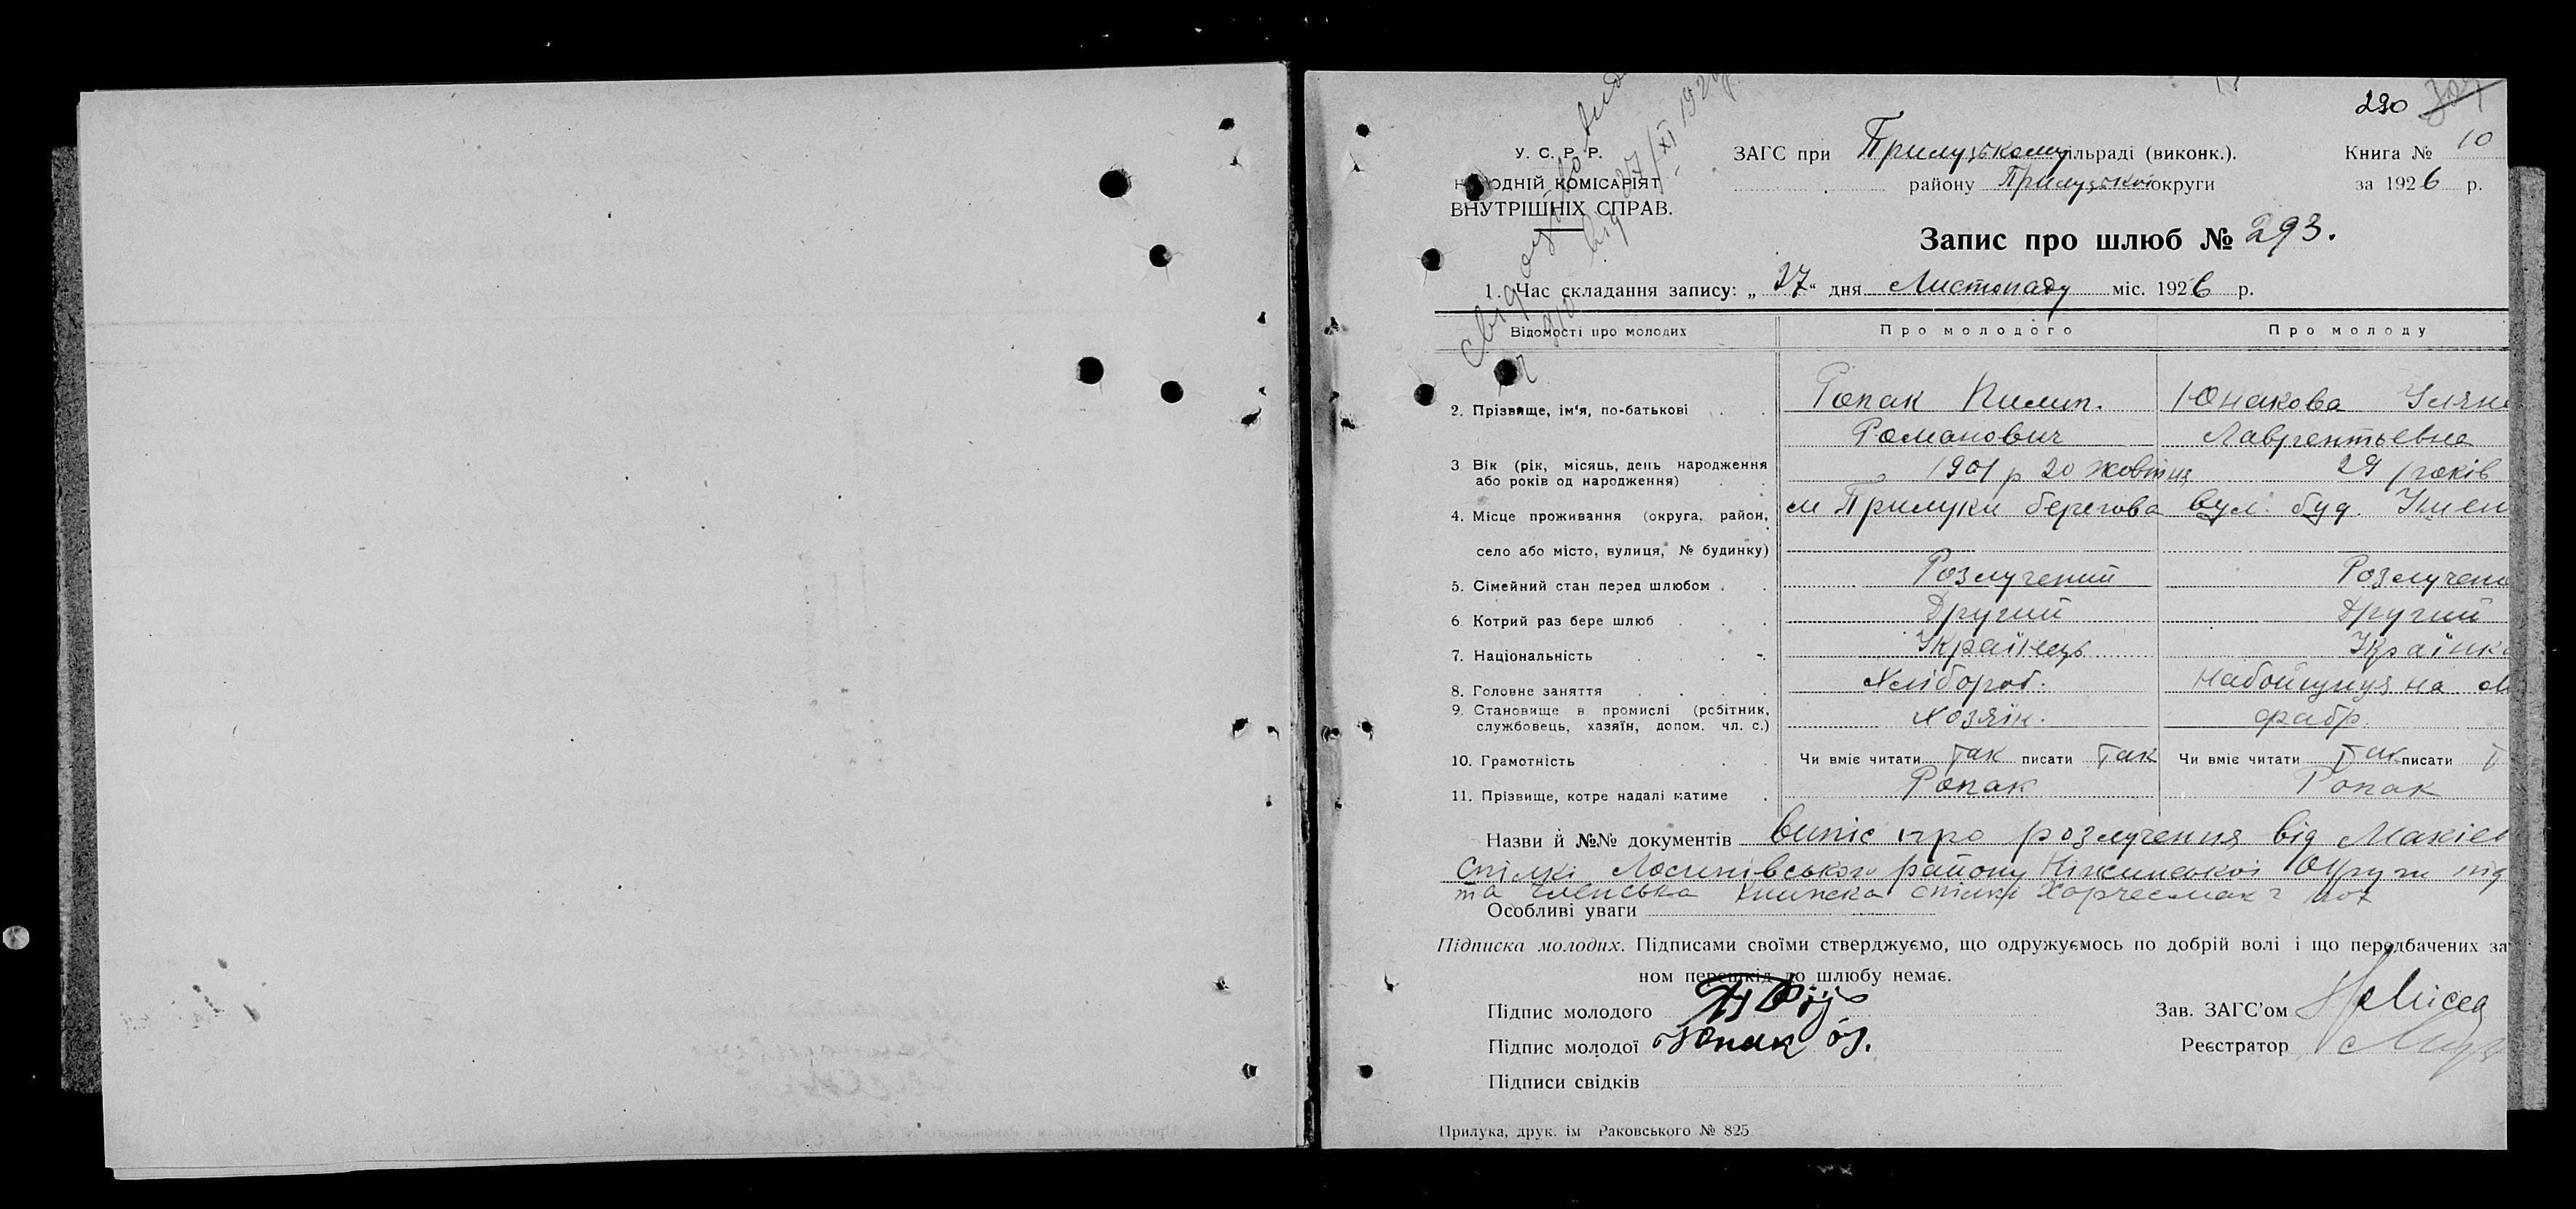 290 327
У. С. Р. Р. ЗАГС при Прилуцькому ільраді (виконк.). Книга № 10
НАРОДНІЙ КОМІСАРІЯТ району Прилуцької округи за 1926 р.
ВНУТРІШНІХ СПРАВ.
Запис про шлюб № 293.
1. Час складання запису: „27“ дня Листопаду міс. 1926 р.
Відомості про молодих Про молодого Про молоду
2. Прізвище, ім'я, по-батькові Ропак Пилип. Юнакова Уляна
Романович Лаврентьевна
3 Вік (рік, місяць, день народження 1901 р 20 жовтня 29 років
або років од народження)
4. Місце проживання (округа, район, м Прилуки берегова вул. буд.
село або місто, вулиця, № будинку)
5. Сімейний стан перед шлюбом Розлучений Розлучена
6 Котрий раз бере шлюб Другий Другий
7. Національність Українець Українка
8. Головне заняття Хлібороб. на
9. Становище в промислі (робітник, Хозяїн. фабр.
службовець, хазяїн, допом. чл. с.)
10. Грамотність Чи вміє читати так писати так Чи вміє читати так писати
11. Прізвище, котре надалі матиме Ропак Ропак
Назви й №№ документів випіс про розлучення від
Спілкі Лосинівського району Ніжинської Округи від
та членська книжка спілкі
Особливі уваги
Підписка молодих. Підписами своїми стверджуємо, що одружуємось по добрій волі і що передбачених за
ном перешкід до шлюбу немає.
Підпис молодого Зав. ЗАГС’ом
Підпис молодої Реєстратор
Підписи свідків
Прилука, друк. ім Раковського № 825